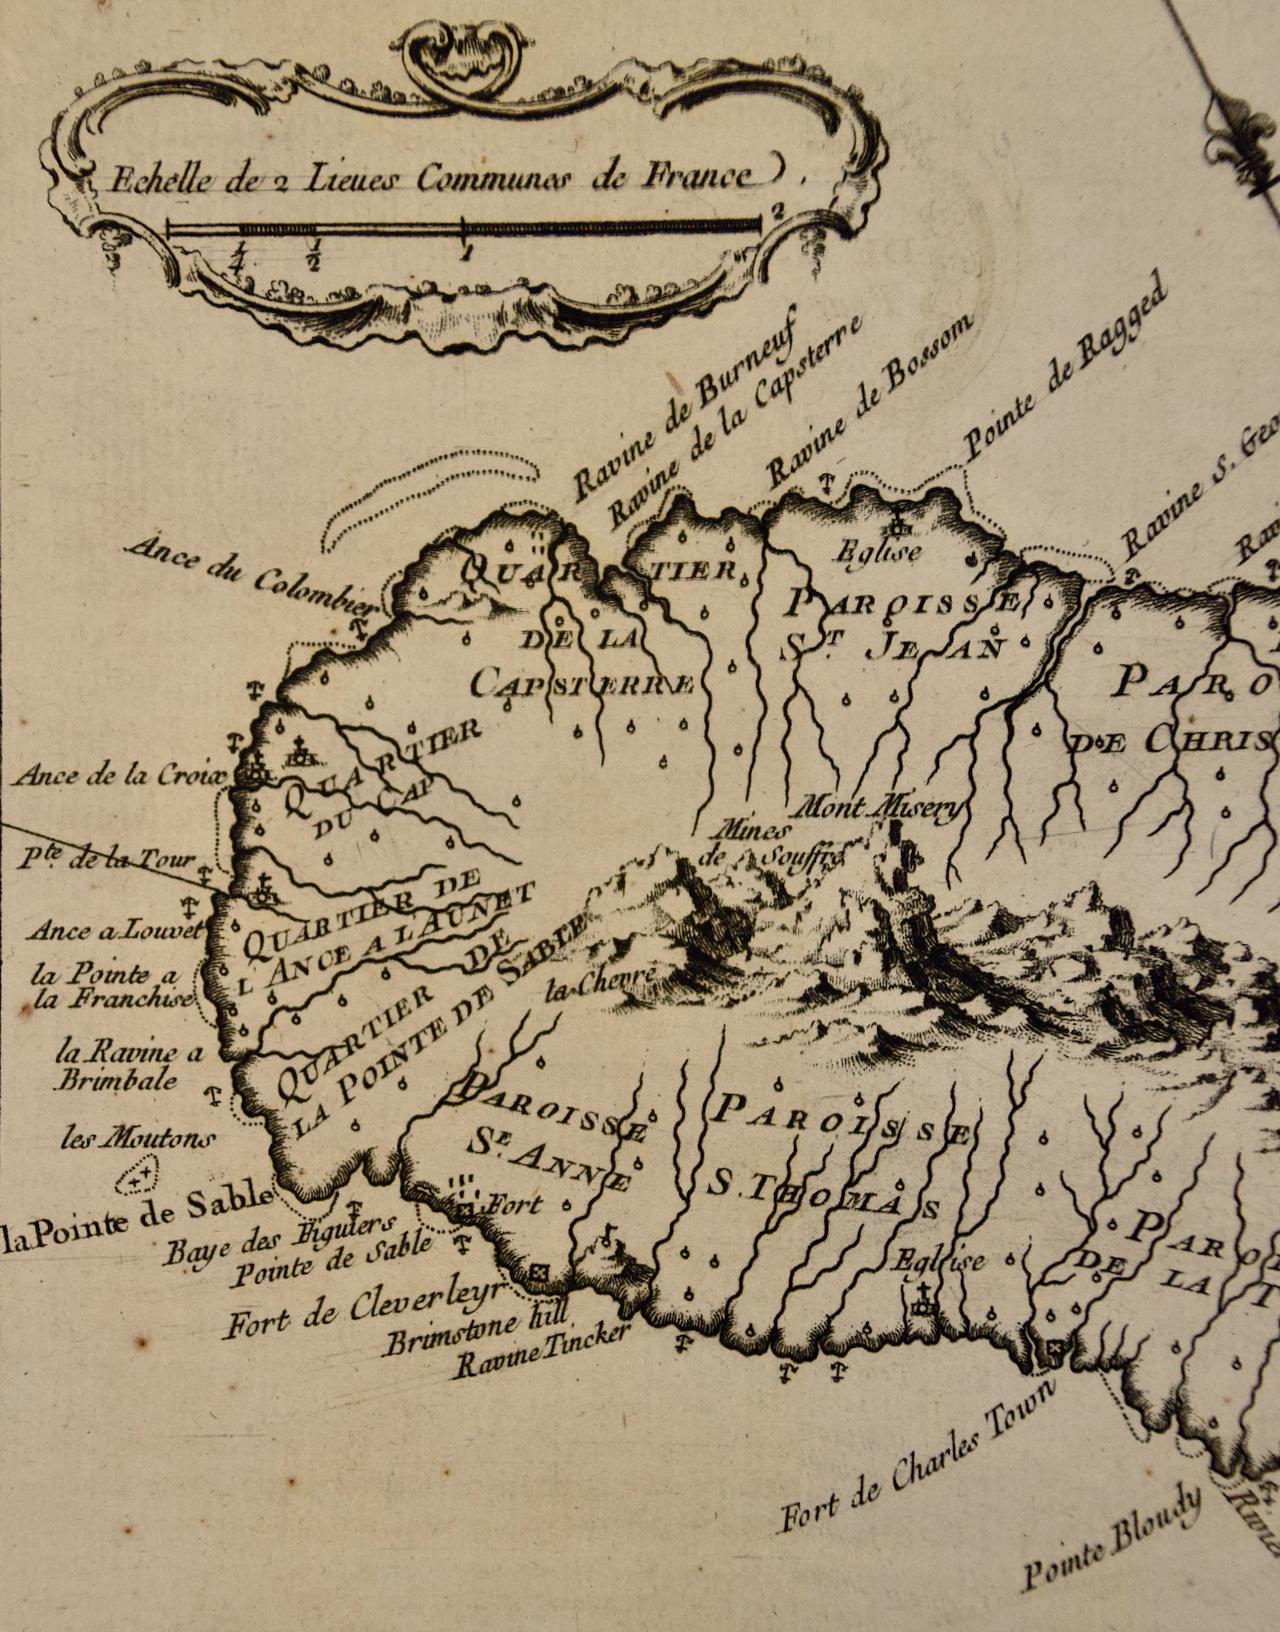 Echelle de 2 Lieues Communes de France
1/4 1/2 1 2
Ravine de Burneuf
Ravine de la Capsterre
Ravine de Bossom
Pointe de Ragged
Ravine S. Geo
Rav
Ance du Colombier
QUARTIER
DE LA
CAPSTERRE
Eglise
PAROISSE
ST JEAN
PARO
DE CHRIS
Ance de la Croix
QUARTIER
DU CAP
Mont Misery
Mines
de Souffre
Pte de la Tour
QUARTIER DE
L'ANCE A LAUNET
Ance a Louvet
la Pointe a
la Franchise
la Chevre
QUARTIER DE
LA POINTE DE SABLE
la Ravine a
Brimbale
les Moutons
PAROISSE
SE. ANNE
PAROISSE
S. THOMAS
PARO
DE LA T
la Pointe de Sable
Fort
Baye des Figuiers
Pointe de Sable
Eglise
Fort de Cleverleyr
Brimstone hill
Ravine Tincker
Fort de Charles Town
Pointe Bloudy